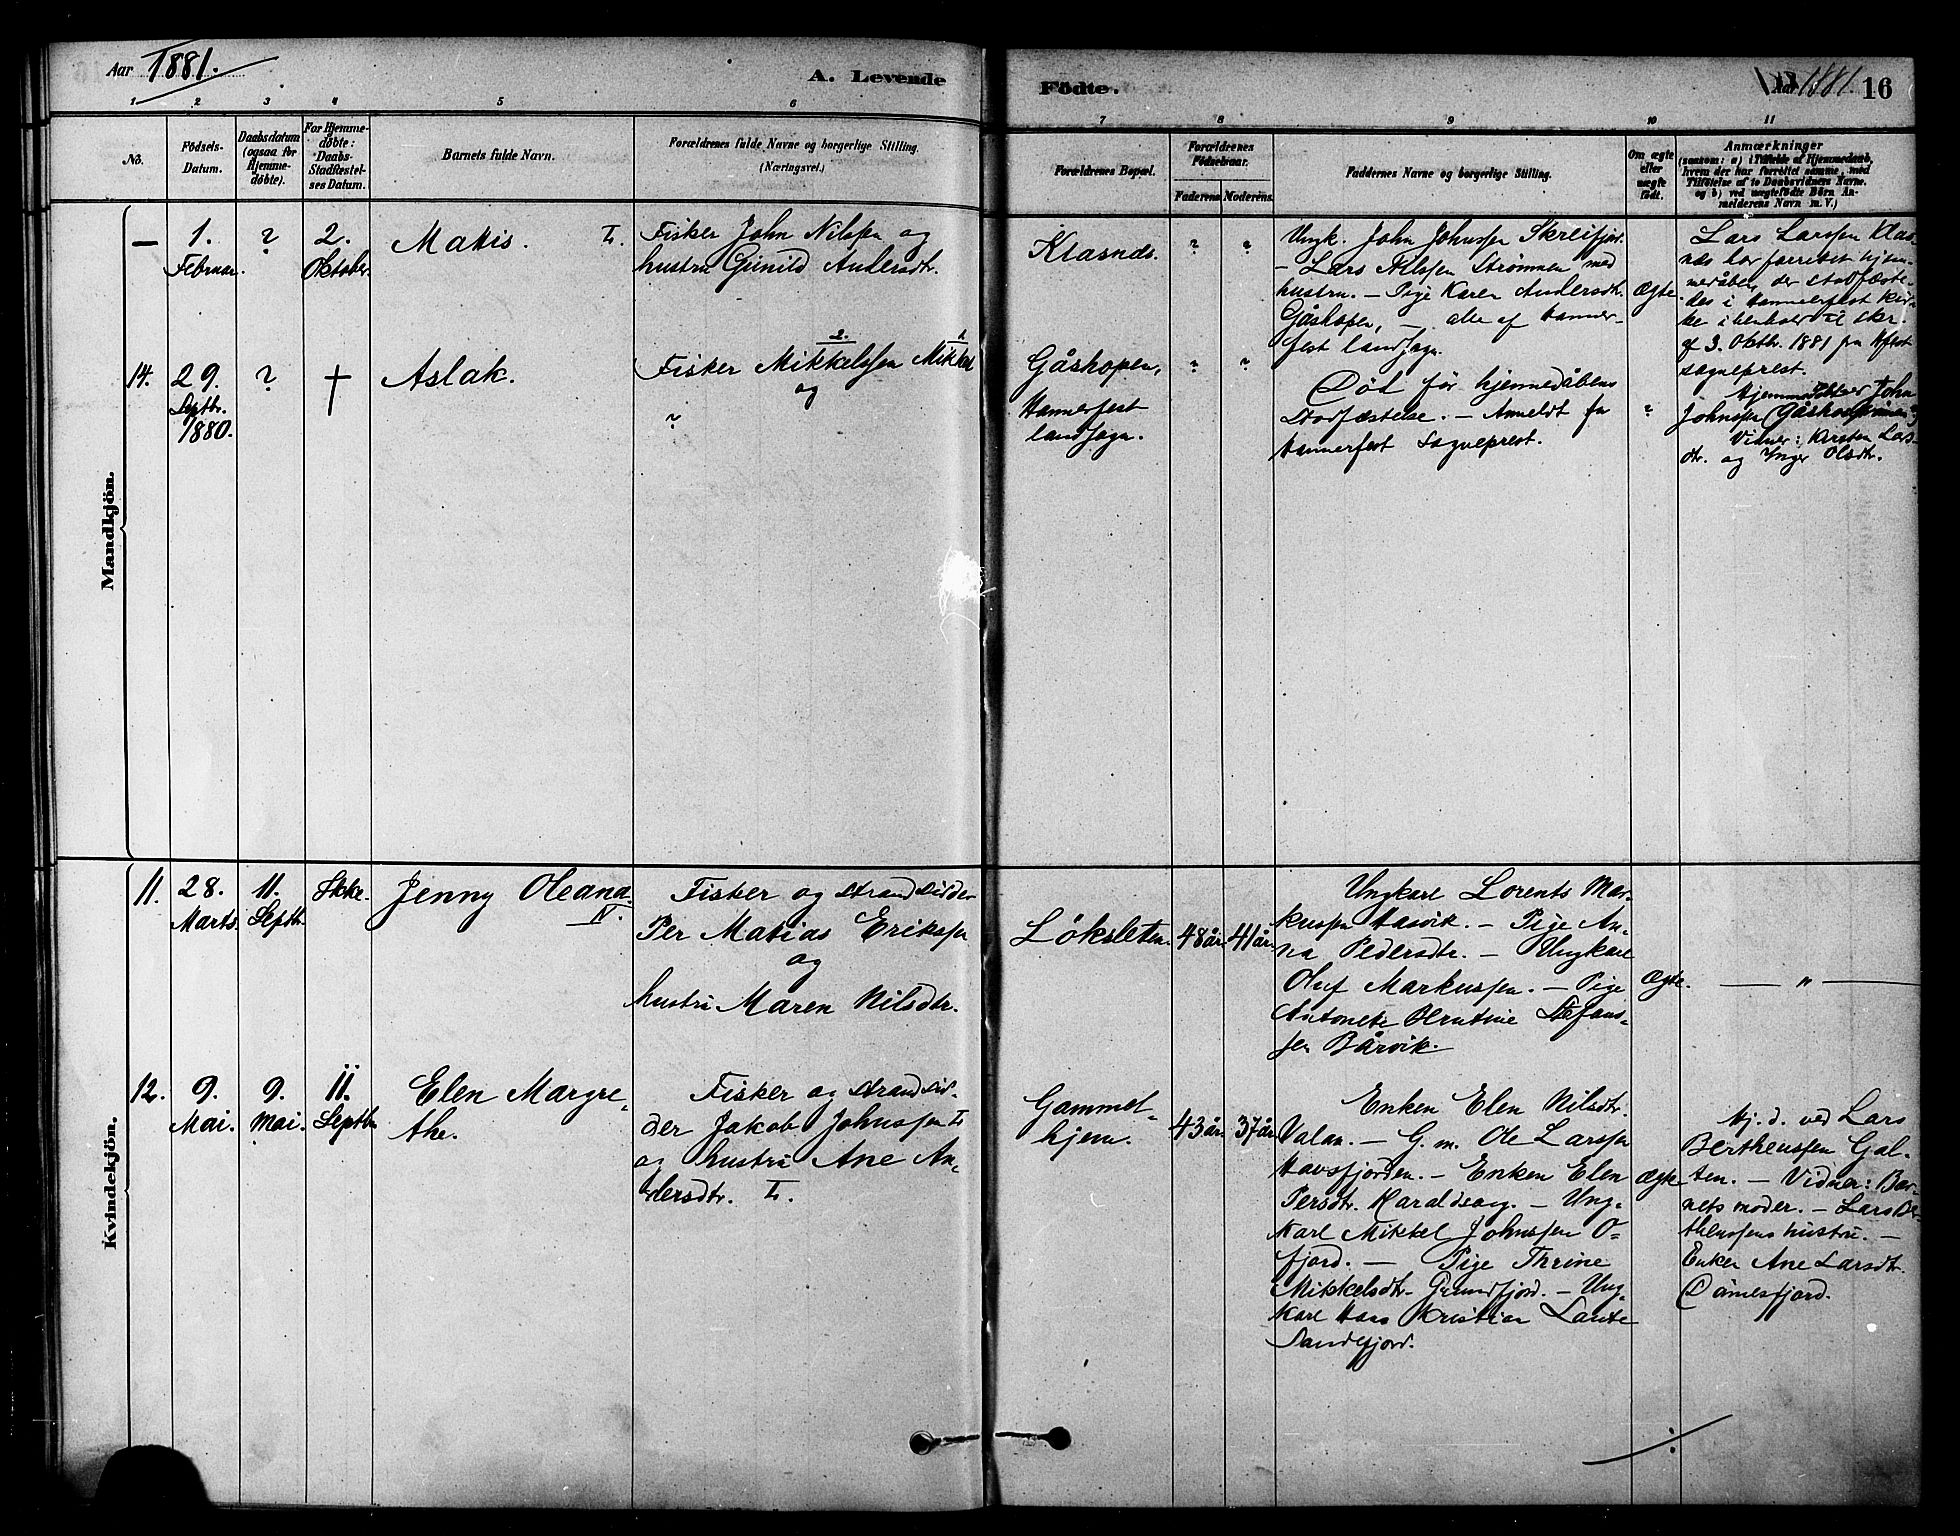 Aar 1881.
A. Levende
Födte.
Aar 1881. 16
1 2 3 4 5 6 7 8 9 10 11
No.
Födsels-
Datum.
Daabsdatum
(ogsaa for
Hjemme-
döbte).
For Hjemme-
döbte:
Daabs-
Stadfæstel-
ses Datum.
Barnets fulde Navn.
Forældrenes fulde Navne og borgerlige Stilling.
(Næringsvei.)
Forældrenes Bopæl.
Forældrenes
Födselsaar.
Faderens
Moderens.
Faddernes Navne og borgerlige Stilling.
Om ægte
eller
uægte
født.
Anmærkninger
(saasom: a) i Tilfælde af Hjemmedaab,
hvem der har forrettet samme, med
Tilföielse af to Daabsvidners Navne,
og b) ved uægtefödte Börn An-
melderens Navn m. V.)
Mandkjön.
—
1.
Februar.
?
2.
Oktober.
Makis.
L.
Fisker John Nilssen og
hustru Gunild Andersdtr.
Klasnds.
"
"
Ungk. John Johnssen Skreifjord.
– Lars Nilssen Strømmen med
hustru. – Pige Karen Andersdtr.
Gåshopen, – alle af Hammer-
fest landsogn.
Ægte.
Lars Larssen Klas-
næs har forrettet hjem-
medåben, der stadfæste-
des i Hammerfest kir-
ke i henhold til skr.
af 3. Oktbr. 1881 fra Hfest
sogneprest.
14.
29.
Septbr.
1880.
?
†
Aslak.
2. 1.
Fisker Mikkelssen Mikkel
og
?
Gåshopen,
Hammerfest
landsogn.
"
"
Död för hjemmedåbens
Stadfæstelse. – Anmeldt fra
Hammerfest Sogneprest.
"
Hjemmedöbt John
Johnssen Gåshopen
Vidner: Kirsten Lars-
dtr. og Inger Olsdtr.
Kvindekjön.
11.
28.
Marts.
11.
Septbr.
Ikke.
Jenny Oleana.
N.
Fisker og Strandsidder
Per Matias Erikssen
og
hustru Maren Nilsdtr.
Löksleten.
48 år.
41 år.
Ungkarl Lorents Mar-
kussen Hasvik. – Pige An-
na Pedersdtr. – Ungkarl
Oluf Markussen. – Pige
Antonete Oleutine Stefans-
sen Bårvik.
Ægte.
— " —
12.
9.
Mai.
9.
Mai.
11.
Septbr.
Elen Margre-
the.
Fisker og Strandsid-
der Jakob Johnssen L.
og hustru Ane An-
dersdtr. L.
Gammel-
hjem.
43 år.
37 år.
Enken Elen Nilsdtr.
Valan. – G. m. Ole Larssen
Havsfjorden. – Enken Elen
Persdtr. Haraldseng. – Ung-
karl Mikkel Johnssen O-
fjord. – Pige Thrine
Mikkelsdtr. Grundfjord. – Ung-
karl Hans Kristian Lante
Sandefjord.
Ægte
Hj. d. ved Lars
Berthenssen Gal-
ten. – Vidner: Bar-
nets moder. – Lars Ber-
thenssens hustru. –
Enken Ane Larsdtr.
Dönnesfjord.